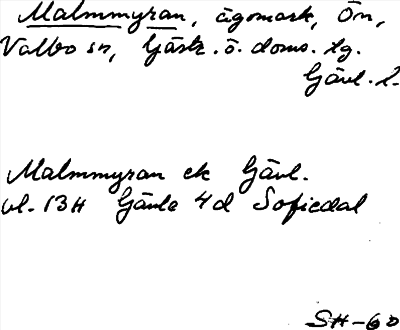 Malmmyran, ägomark, Ön,
Valbo sn, Gästr. ö. doms. tg.
Gävl. l.
Malmmyran ek Gävl.
bl. 13H Gävle 4d Sofiedal
SH-60